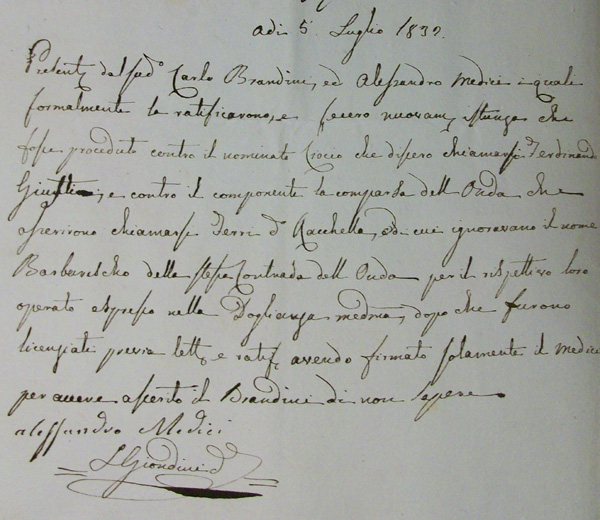 Adì 5 Luglio 1832.
Present.e dal sud.o Carlo Brandini, ed Alessandro Medici i quali
formalmente la ratificarono, e fecero nuovam.e istanza che
fosse proceduto contro il nominato Crocio che dissero chiamarsi Ferdinando
Giusti, e contro il componente la comparsa dell'Onda che
asserirono chiamarsi Ferri d.o Racchella, e di cui ignoravano il nome
Barbaresco della stessa Contrada dell'Onda per il rispettivo loro
operato espresso nella Doglianza med.ma, dopo che furono
licenziati previa lett.a e ratif.a avendo firmato solamente il Medici
per avere asserito il Brandini di non sapere
alessandro Medici